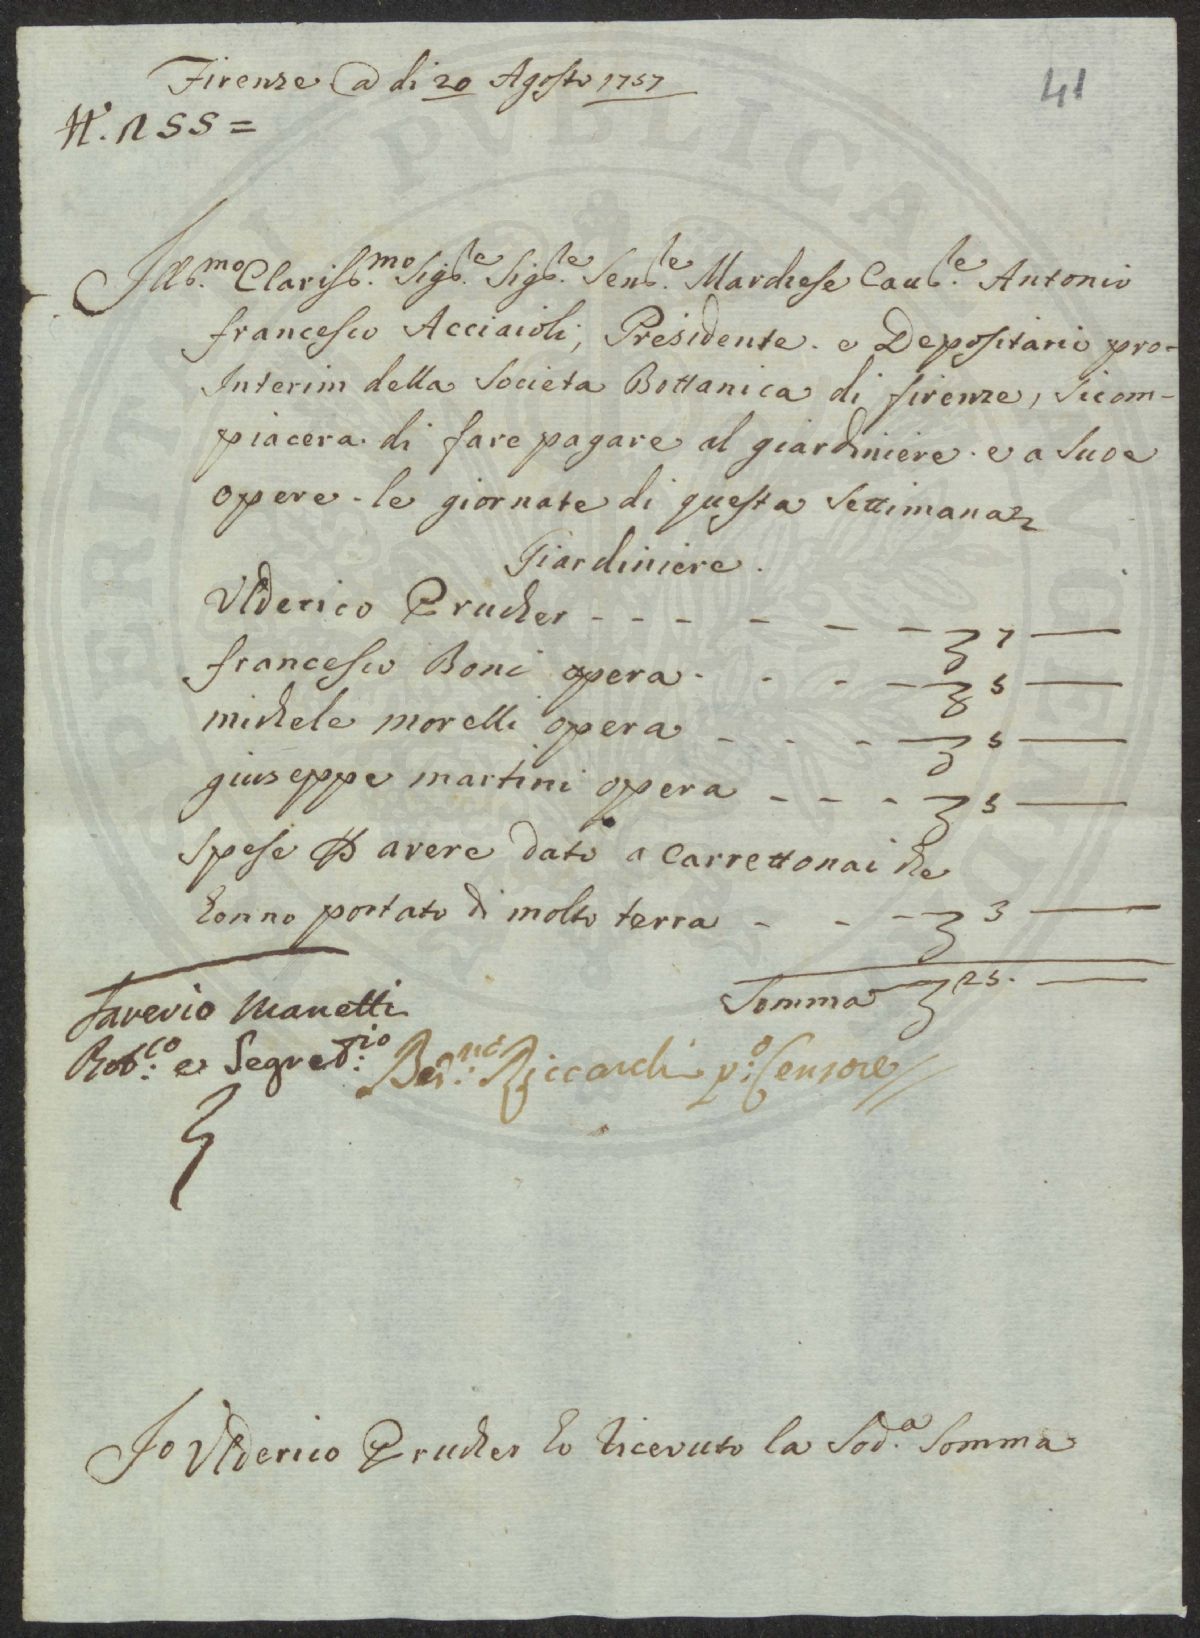 Firenze a di 20 Agosto 1757
41
Ill.mo Clariss.mo Sig.le Sig.le Sen.le Marchese Cau.le Antonio
francesco Acciaioli, Presidente e Depositario pro-
Interim della Societa Bottanica di firenze, si com-
piacera di fare pagare al giardiniere e a Suoe
opere le giornate di questa Settimana
Giardiniere.
Ulderico Prucher - - - - - - 7
francesco Boni opera - - - - 5
michele morelli opera - - - - 5
giuseppe martini opera - - - - 5
Spese p avere dato a Carrettonai che
honno portato di molto terra - - - 3
Somma 25.
Saverio Manetti
e Segret.rio
Ber.no Riccardi p.o Censore
Io Ulderico Prucher ho ricevuto la Sod.a Somma